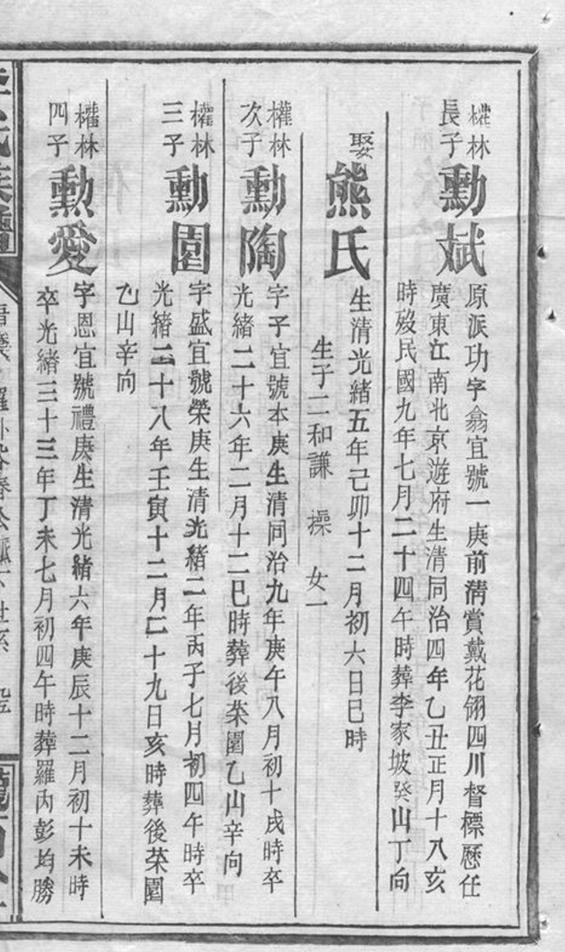 權林
長子
勳斌
原派功字翕宜號一庚前清賞戴花翎四川督標歷任
廣東江南北京遊府生清同治四年乙丑正月十八亥
時歿民國九年七月二十四午時葬李家坡癸山丁向
娶
熊氏
生清光緒五年己卯十二月初六日巳時
生子二和謙 操 女一
權林
次子
勳陶
字子宜號本庚生清同治九年庚午八月初十戌時卒
光緒二十六年二月十二巳時葬後菜園乙山辛向
權林
三子
勳園
字盛宜號榮庚生清光緒二年丙子七月初四午時卒
光緒二十八年壬寅十二月二十九日亥時葬後菜園
乙山辛向
權林
四子
勳愛
字恩宜號禮庚生清光緒六年庚辰十二月初十未時
卒光緒三十三年丁未七月初四午時葬羅內彭均勝